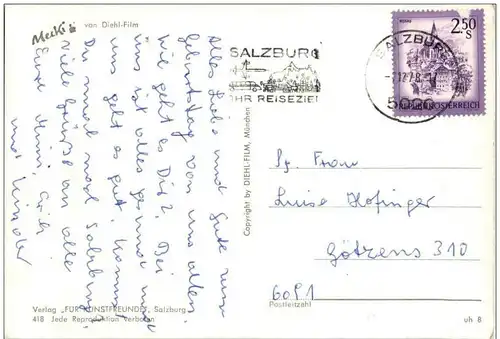 Mecki von Diehl-Film
Alles Liebe und Gute zum
Geburtstag von uns allen.
Wie geht es Dir? Bei
uns ist alles gesund und
uns geht es gut. Kommst
Du mal nach Salzburg?
Viele Grüße an alle
Eure Mimi,
und Kinder
Verlag „FÜR KUNSTFREUNDE", Salzburg
418 Jede Reproduktion verboten
Copyright by DIEHL-FILM, München
SALZBURG
IHR REISEZIEL
SALZBURG
2.50
S
REPUBLIK ÖSTERREICH
Frau
Luise Hofinger
Götzens 310
6091
Postleitzahl
uh 8